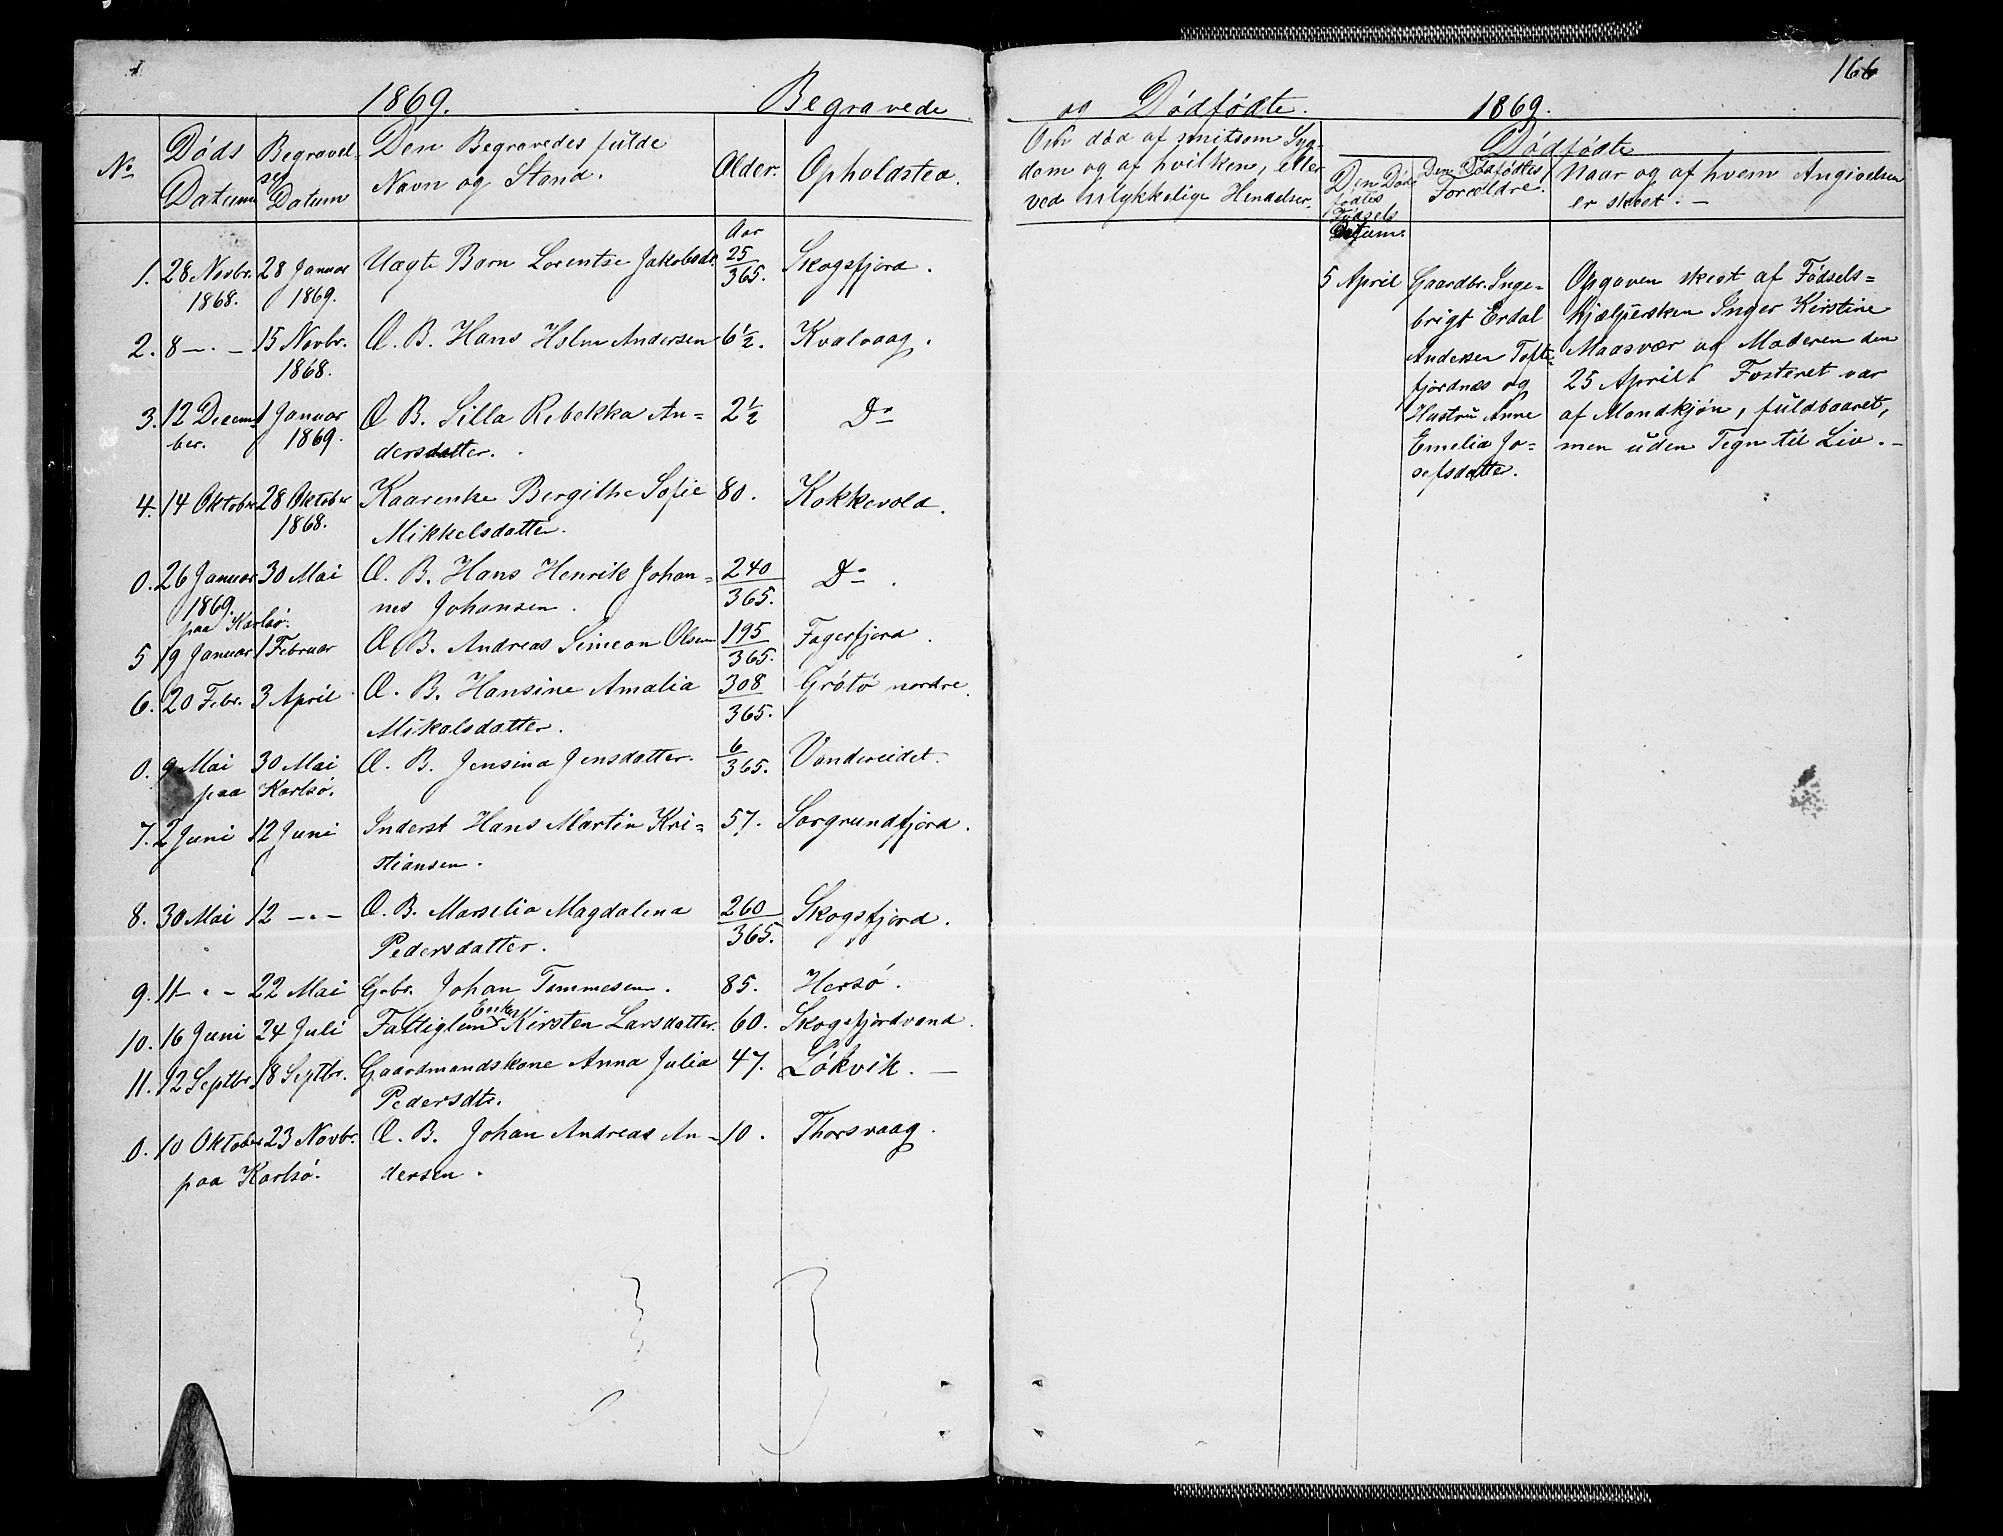 166
1869. Begravede
og Dødfødte. 1869.
No
Døds Datum
Begravelses Datum
Den Begravedes fulde
Navn og Stand.
Alder.
Opholdsted.
Om død af smitsom Syg-
dom og af hvilken, eller
ved ulykkelige Hendelser.
Dødfødte
Den Død-
fødtes
Fødsels
Datum.
Den Dødfødtes
Forældre.
Naar og af hvem Angivelsen
er skeet. —
Aar
1. 28 Novbr. 28 Januar Uægte Barn Lorentse Jakobsdr. 25/365. Skogsfjord.
1868. 1869.
2. 8 —„— 15 Novbr. Æ. B. Hans Holm Andersen 6½. Kvalvaag.
1868.
3. 12 Decem- 1 Januar Æ B. Silla Rebekka An= 2½ Do
ber. 1869. dersdatter.
4. 14 Oktober 28 Oktober Kaarenke Bergithe Sofie 80. Kokkevold.
1868. Mikkelsdatter.
0. 26 Januar 30 Mai Æ. B. Hans Henrik Johan= 240/365. Do.
1869. nes Johansen.
paa Karlsø.
5 19 Januar 1 Februar Æ B. Andreas Simeon Olsen 195/365. Fagerfjord.
6. 20 Febr. 3 April Æ. B. Hansine Amalia 308/365. Grøtø nordre.
Mikalsdatter.
0. 9 Mai 30 Mai Æ. B. Jensina Jensdatter. 6/365. Vandereidet.
paa Karlsø.
7. 2 Juni 12 Juni Inderst Hans Martin Kri= 57. Sorgrundfjord.
stiansen.
8. 30 Mai 12 —„— Æ. B. Marselia Magdalena 260/365. Skogsfjord.
Pedersdatter.
9. 11 —„— 22 Mai Gbr. Johan Tommesen. 85. Hersø.
10. 16 Juni 24 Juli Fattiglem Enke Kirsten Larsdatter. 60. Skogsfjordvand.
11. 12 Septbr. 18 Septbr. Gaardmandskone Anna Julia 47. Løkvik. —
Pedersdtr.
0. 10 Oktober 23 Novbr. Æ. B. Johan Andreas An- 10. Thorsvaag.
paa Karlsø. dersen.
5 April Gaardbr. Inge= Opgaven skeet af Fødsels=
brigt Erdal hjælpersken Inger Kirstine
Andersen Toft- Maasvær og Moderen den
fjordnæs og 25 April. Fosteret var
Hustru Anne af Mandkjøn, fuldbaaret,
Emelia Jo= men uden Tegn til Liv. —
sefsdatter.